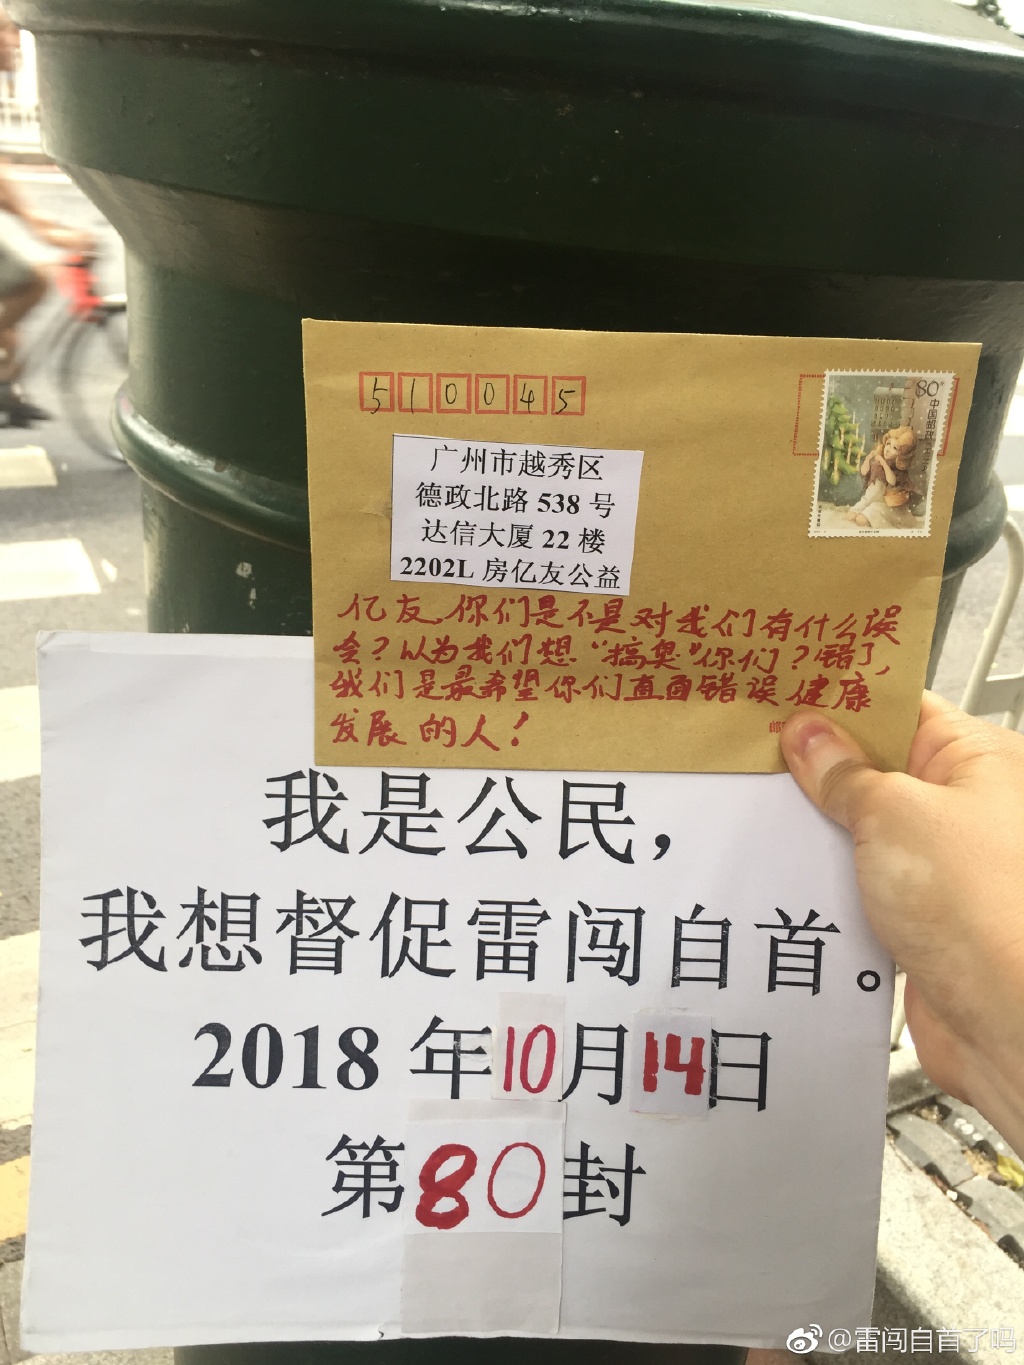 510045
80
中国邮政
广州市越秀区
德政北路 538 号
达信大厦 22 楼
2202L 房亿友公益
亿友,你们是不是对我们有什么误
会?以为我们想“搞臭”你们?错了,
我们是最希望你们直面错误健康
发展的人!
我是公民,
我想督促雷闯自首。
2018 年10月14日
第80封
@雷闯自首了吗